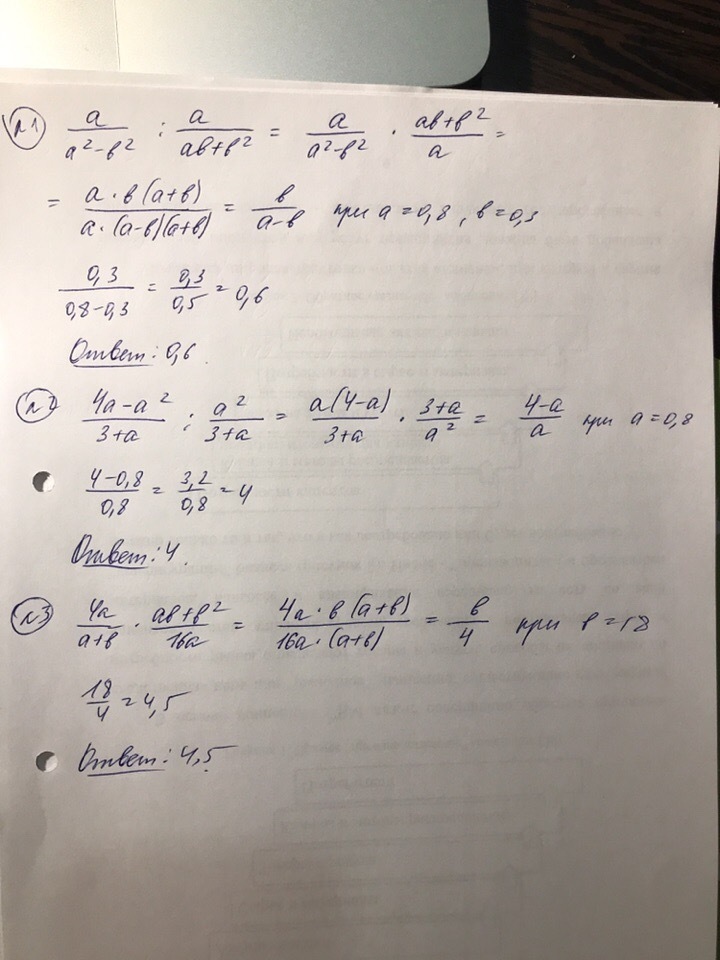 №1 a/(a²-в²) : a/(aв+в²) = a/(a²-в²) · (aв+в²)/a =
= (a·в(a+в))/(a·(a-в)(a+в)) = в/(a-в) при a=0,8, в=0,3
0,3/(0,8-0,3) = 0,3/0,5 = 0,6
Ответ: 0,6.
№2 (4a-a²)/(3+a) : a²/(3+a) = a(4-a)/(3+a) · (3+a)/a² = (4-a)/a при a=0,8
(4-0,8)/0,8 = 3,2/0,8 = 4
Ответ: 4.
№3 4a/(a+в) · (aв+в²)/16a = (4a·в(a+в))/(16a·(a+в)) = в/4 при в=18
18/4 = 4,5
Ответ: 4,5.